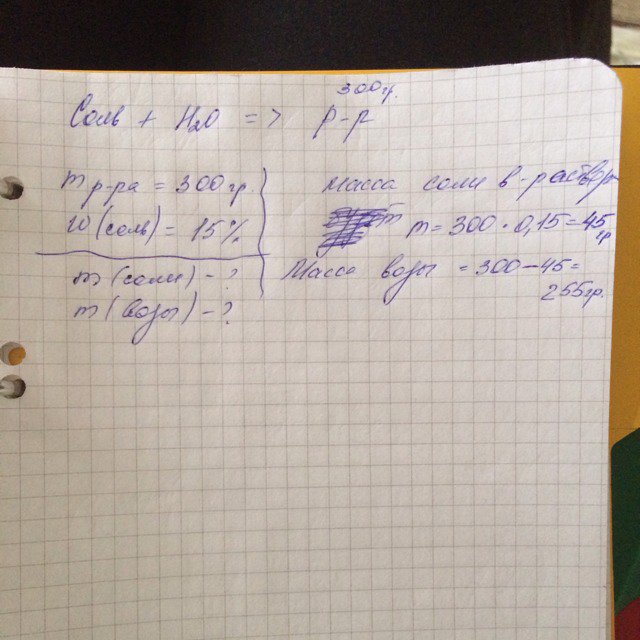 300гр.
Соль + H2O => р-р
m р-ра = 300гр
w(соль) = 15%
m(соли) - ?
m(воды) - ?
Масса соли в-растворе
m = 300 · 0,15 = 45
гр
Масса воды = 300 - 45 =
255гр.